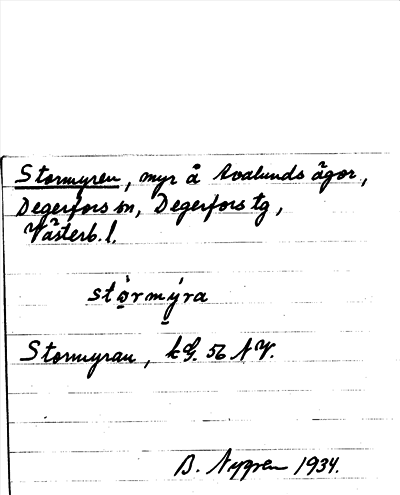 Stormyren, myr å Avalunds ägor,
Degerfors sn, Degerfors tg,
Västerb. l.
stọ̀rmỵ́ra
Stormyran, kG. 56 NV.
B. Nygren 1934.